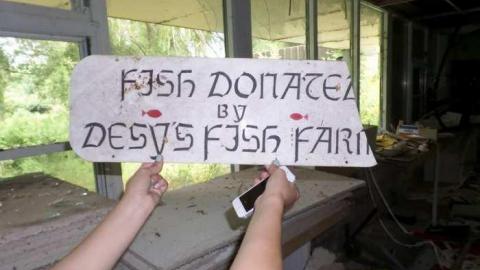 FISH DONATED
BY
DESY'S FISH FARM